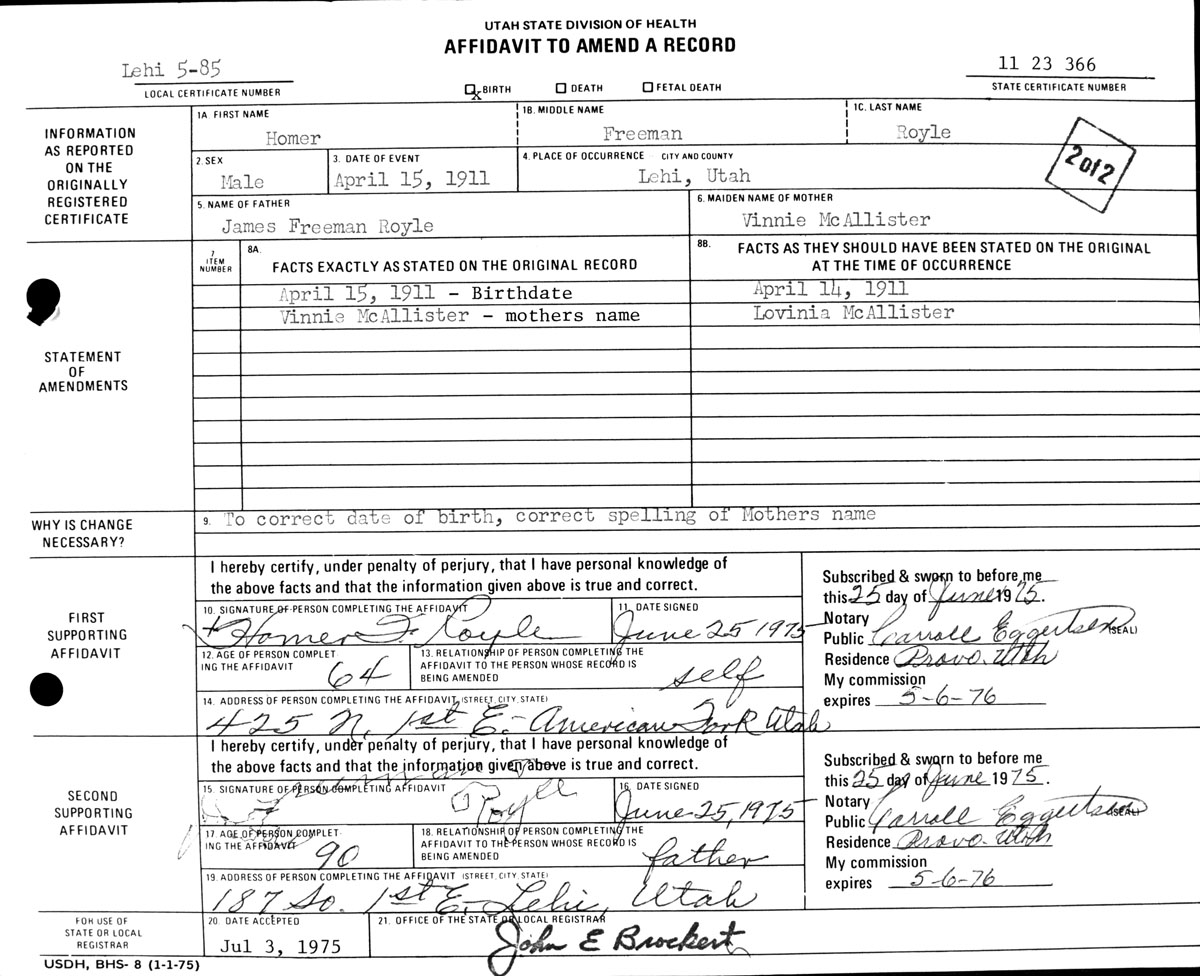 UTAH STATE DIVISION OF HEALTH
AFFIDAVIT TO AMEND A RECORD
Lehi 5-85
LOCAL CERTIFICATE NUMBER
x BIRTH DEATH FETAL DEATH
11 23 366
STATE CERTIFICATE NUMBER
INFORMATION
AS REPORTED
ON THE
ORIGINALLY
REGISTERED
CERTIFICATE
1A. FIRST NAME 1B. MIDDLE NAME 1C. LAST NAME
Homer Freeman Royle
2. SEX 3. DATE OF EVENT 4. PLACE OF OCCURRENCE - CITY AND COUNTY
Male April 15, 1911 Lehi, Utah
2 of 2
5. NAME OF FATHER 6. MAIDEN NAME OF MOTHER
James Freeman Royle Vinnie McAllister
STATEMENT
OF
AMENDMENTS
7
ITEM
NUMBER
8A.
FACTS EXACTLY AS STATED ON THE ORIGINAL RECORD
8B. FACTS AS THEY SHOULD HAVE BEEN STATED ON THE ORIGINAL
AT THE TIME OF OCCURRENCE
April 15, 1911 - Birthdate April 14, 1911
Vinnie McAllister - mothers name Lovinia McAllister
WHY IS CHANGE
NECESSARY?
9. To correct date of birth, correct spelling of Mothers name
FIRST
SUPPORTING
AFFIDAVIT
I hereby certify, under penalty of perjury, that I have personal knowledge of
the above facts and that the information given above is true and correct.
10. SIGNATURE OF PERSON COMPLETING THE AFFIDAVIT 11. DATE SIGNED
Homer F. Royle June 25 1975
12. AGE OF PERSON COMPLET
ING THE AFFIDAVIT 64
13. RELATIONSHIP OF PERSON COMPLETING THE
AFFIDAVIT TO THE PERSON WHOSE RECORD IS
BEING AMENDED self
14. ADDRESS OF PERSON COMPLETING THE AFFIDAVIT (STREET, CITY, STATE)
425 N. 1st E. American Fork Utah
Subscribed & sworn to before me
this 25 day of June 1975.
Notary
Public Carroll Eggertsen (SEAL)
Residence Provo. Utah
My commission
expires 5-6-76
SECOND
SUPPORTING
AFFIDAVIT
I hereby certify, under penalty of perjury, that I have personal knowledge of
the above facts and that the information given above is true and correct.
15. SIGNATURE OF PERSON COMPLETING AFFIDAVIT 16. DATE SIGNED
Royle June 25, 1975
17. AGE OF PERSON COMPLET
ING THE AFFIDAVIT 90
18. RELATIONSHIP OF PERSON COMPLETING THE
AFFIDAVIT TO THE PERSON WHOSE RECORD IS
BEING AMENDED father
19. ADDRESS OF PERSON COMPLETING THE AFFIDAVIT (STREET, CITY, STATE)
187 So. 1st E. Lehi, Utah
Subscribed & sworn to before me
this 25 day of June 1975.
Notary
Public Carroll Eggertsen (SEAL)
Residence Provo. Utah
My commission
expires 5-6-76
FOR USE OF
STATE OR LOCAL
REGISTRAR
20. DATE ACCEPTED 21. OFFICE OF THE STATE OR LOCAL REGISTRAR
Jul 3, 1975 John E Brockert
USDH, BHS- 8 (1-1-75)